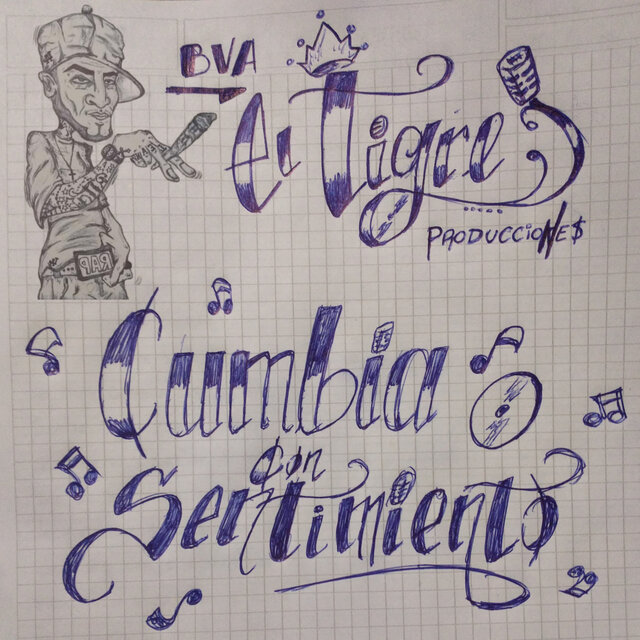 BVA
El Tigre
PRODUCCIONE$
RAP
Cumbia
Con
Sentimiento